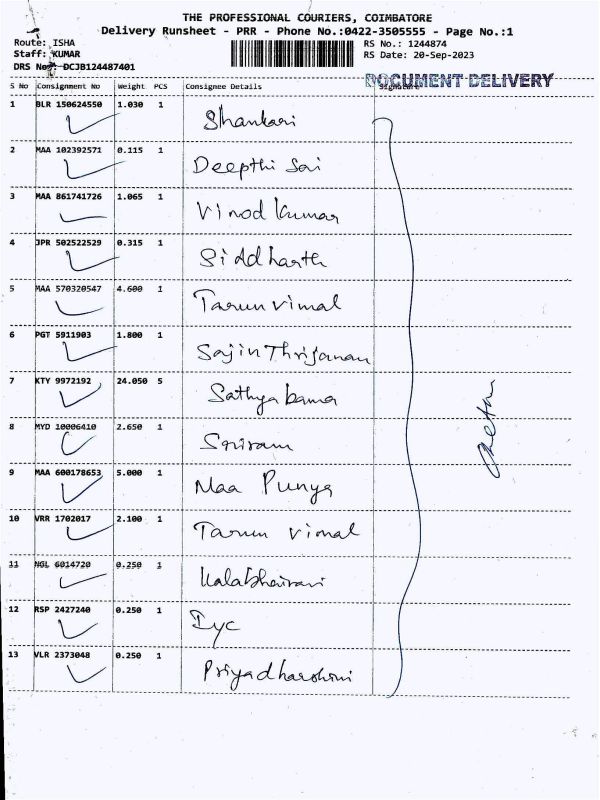 THE PROFESSIONAL COURIERS, COIMBATORE
Delivery Runsheet - PRR - Phone No.:0422-3505555 - Page No.:1
Route: ISHA RS No.: 1244874
Staff: KUMAR RS Date: 20-Sep-2023
DRS No.: DCJB124487401
DOCUMENT DELIVERY
S No Consignment No Weight PCS Consignee Details Signature
1 BLR 150624550 1.030 1 Shankari
2 MAA 102392571 0.115 1 Deepthi Sai
3 MAA 861741726 1.065 1 Vinod Kumar
4 JPR 502522529 0.315 1 Siddharth
5 MAA 570320547 4.600 1 Tarun vimal
6 PGT 5911903 1.800 1 Sajin
7 KTY 9972192 24.050 5 Sathyabama
8 MYD 10006410 2.650 1 Sriram
9 MAA 600178653 5.000 1 Maa Punya
10 VRR 1702017 2.100 1 Tarun vimal
11 NGL 6014720 0.250 1 Kalabhairavi
12 RSP 2427240 0.250 1 Iyc
13 VLR 2373048 0.250 1 Priyadharshini